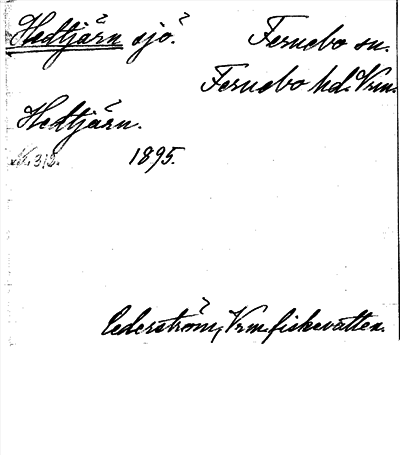 Hedtjärn sjö.
Fernebo sn.
Fernebo hd. Vrm.
Hedtjärn.
1895.
Cederström, Vrm. fiskevatten.